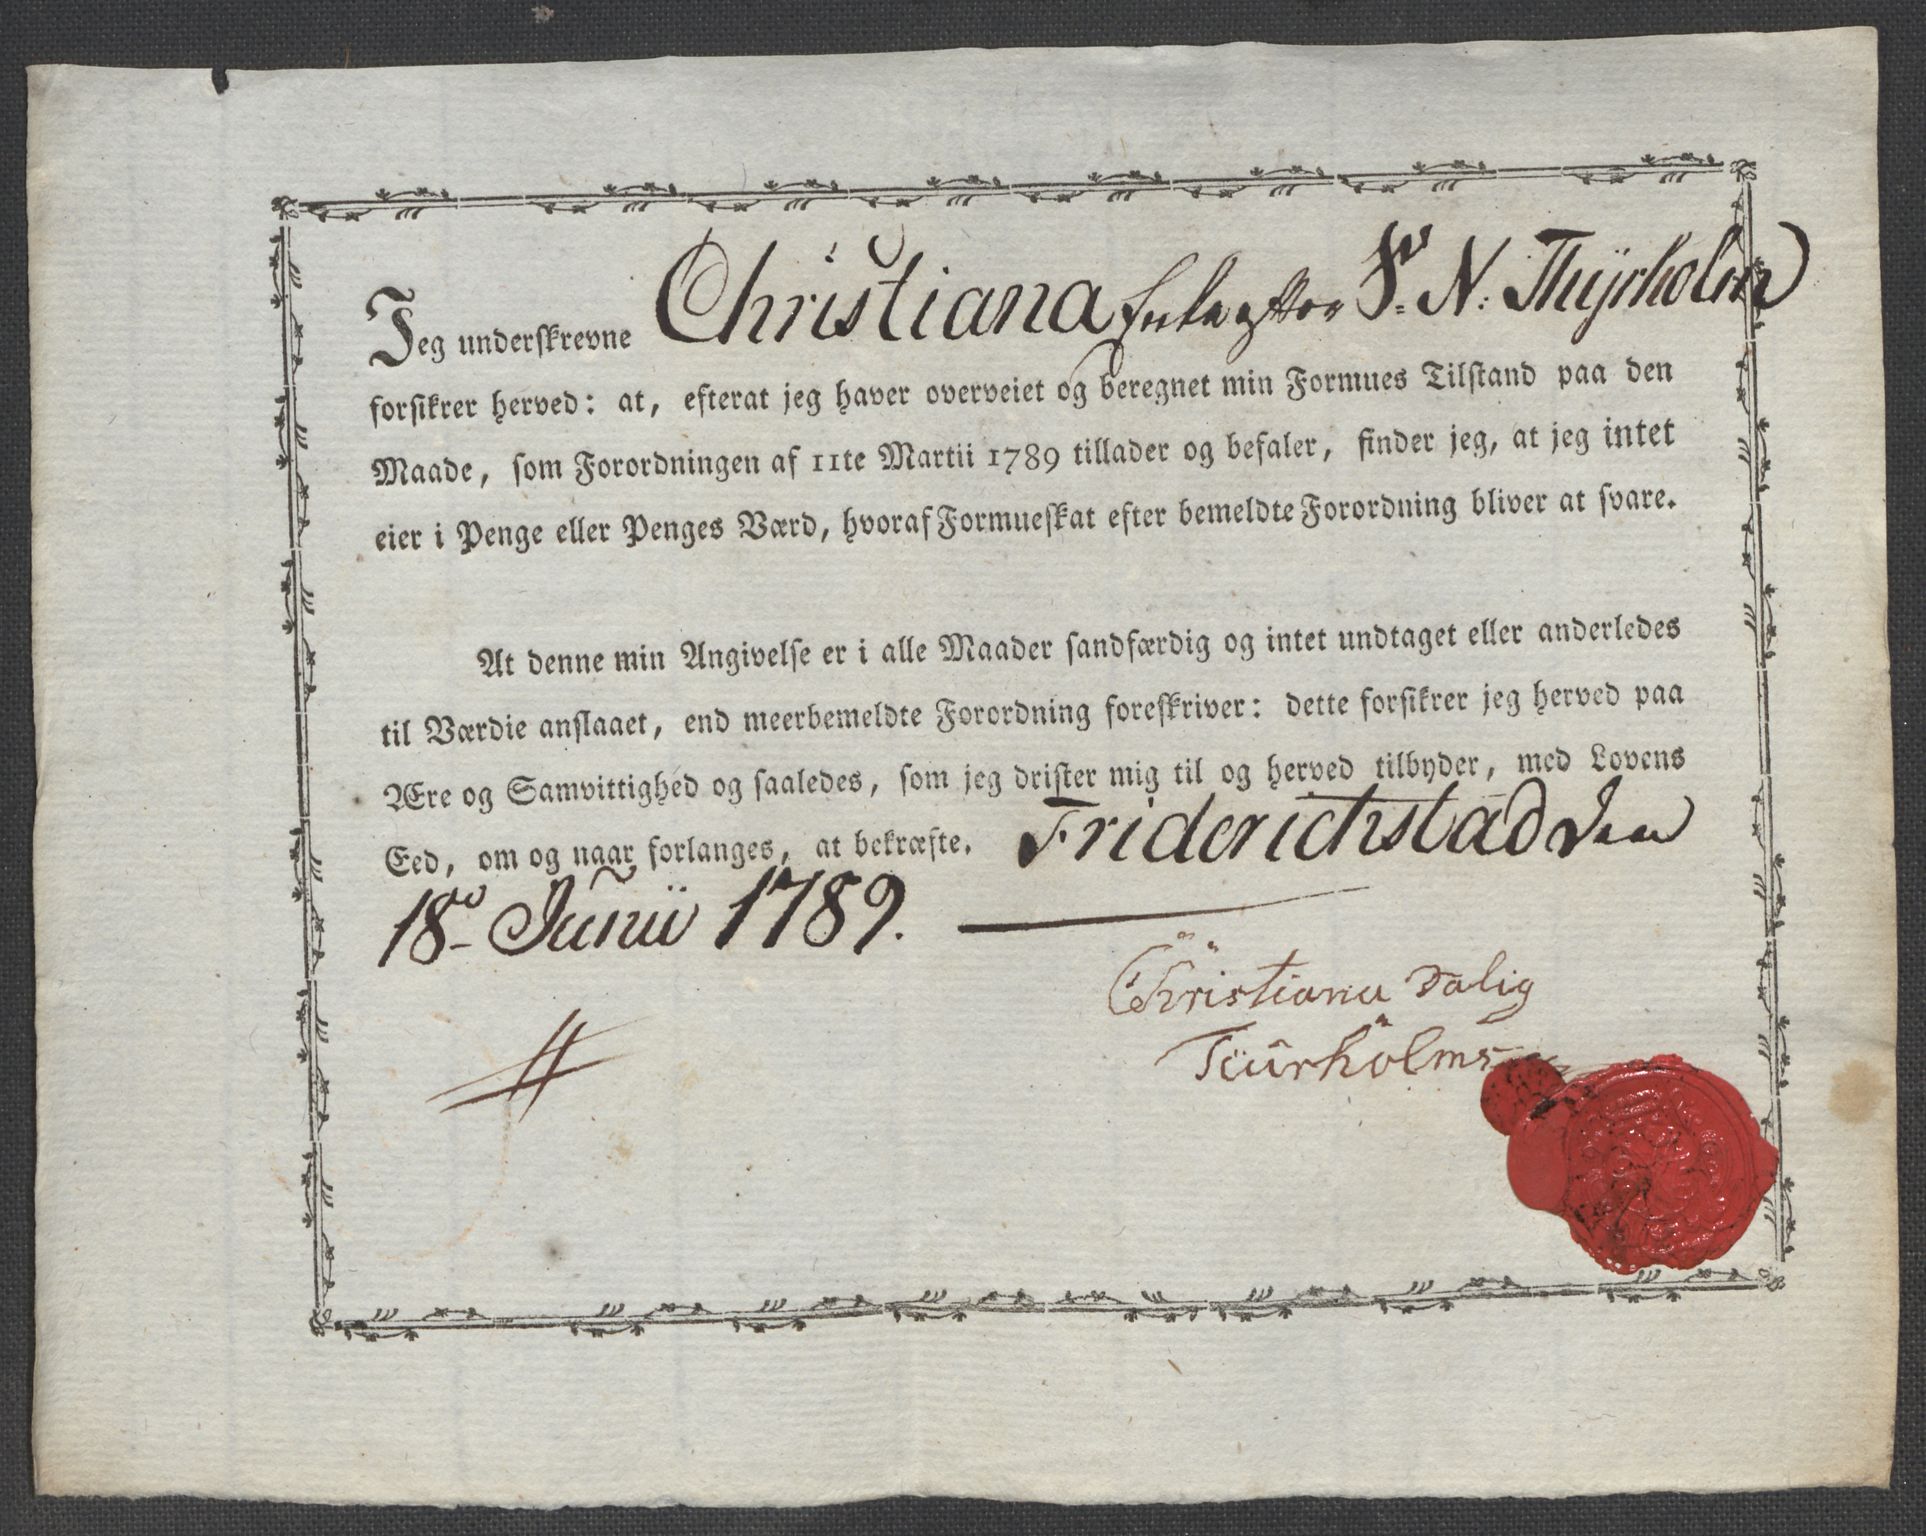 Jeg underskrevne Christiana Enke efter Sr. N: Thÿrholm
forsikrer herved: at, efterat jeg haver overveiet og beregnet min Formues Tilstand paa den
Maade, som Forordningen af 11te Martii 1789 tillader og befaler, finder jeg, at jeg intet
eier i Penge eller Penges Værd, hvoraf Formueskat efter bemeldte Forordning bliver at svare.
At denne min Angivelse er i alle Maader sandfærdig og intet undtaget eller anderledes
til Værdie anslaaet, end meerbemeldte Forordning foreskriver: dette forsikrer jeg herved paa
Ære og Samvittighed og saaledes, som jeg drister mig til og herved tilbyder, med Lovens
Eed, om og naar forlanges, at bekræfte. Friderichstad den
18de Junii 1789.
Christiana Salig
Tiürholms